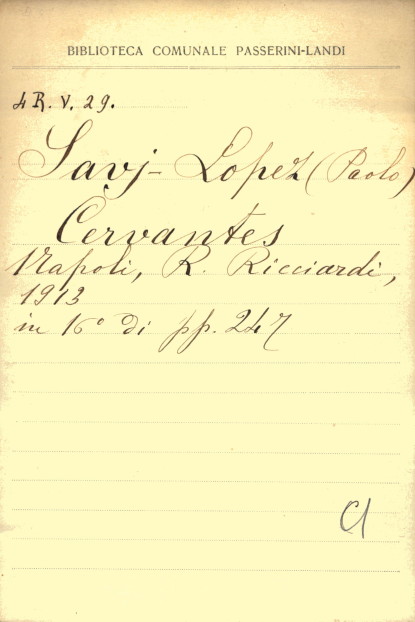 BIBLIOTECA COMUNALE PASSERINI-LANDI
4 R. V. 29.
Savj-Lopez (Paolo)
Cervantes
Napoli, R. Ricciardi,
1913
in 16º di pp. 247